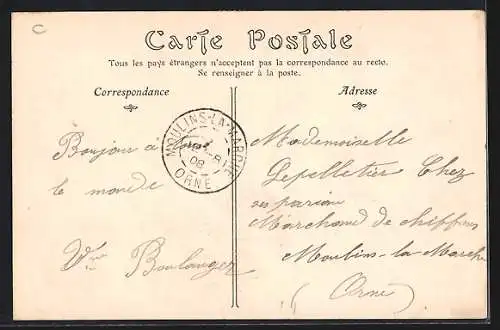 C
Carte Postale
Tous les pays étrangers n'acceptent pas la correspondance au recto.
Se renseigner à la poste.
Correspondance
Adresse
MOULINS-LA-MARCHE
08
ORNE
Bonjour à tout
le monde
Vve Boulanger
Mademoiselle
Lepelletier Chez
ses parian
Marchand de chiffons
Moulin-la-Marche
(Orne)